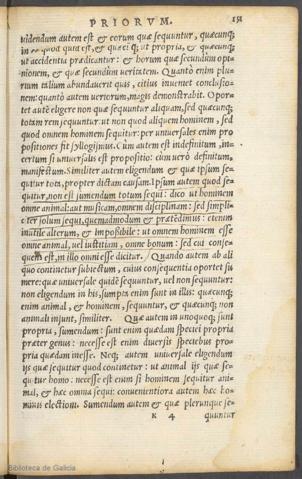 PRIORVM. 151
videndum autem est & eorum quæ sequuntur, quæcunq;
in quod quid est, & quæcunq; ut propria, & quæcunq;
ut accidentia prædicantur: & horum quæ secundum opi
nionem, & quæ secundum veritatem. Quantò enim plu
rum talium abundauerit quis, citius inueniet conclusio
nem: quantò autem veriorum, magis demonstrabit. Opor
tet autē eligere non quæ sequuntur aliquam, sed quæcunq;
totam rem sequuntur: ut non quod aliquem hominem, sed
quod omnem hominem sequitur: per vniuersales enim pro
positiones fit syllogismus. Cùm autem est indefinitum, in
certum si vniuersalis est propositio: cùm verò definitum,
manifestum. Similiter autem eligendum & quæ ipsum se
quitur tota, propter dictam causam. Ipsum autem quod se-
quitur, non est sumendum totum sequi: dico ut hominem
omne animal: aut musicam, omnem disciplinam: sed simpli
citer solum sequi, quemadmodum & prætēdimus: etenim
inutile alterum, & impossibile: ut omnem hominem esse
omne animal, vel iustitiam, omne bonum: sed cui conse-
quens est, in illo omni esse dicitur. Quando autem ab ali
quo continetur subiectum, cuius consequentia oportet su
mere: quæ vniuersale quidē sequuntur, vel non sequuntur:
non eligendum in his, sumpta enim sunt in illis: quæcunq;
enim animal, & hominem, sequuntur, & quæcunq; non
animali insunt, similiter. Quæ autem in unoquoq; sunt
propria, sumendum: sunt enim quædam speciei propria
præter genus: necesse est enim diuersis speciebus pro-
pria quædam inesse. Neq; autem vniuersale eligendum
ijs quæ sequitur quod continetur: ut animal ijs quæ se-
quitur homo: necesse est enim si hominem sequitur ani-
mal, & hæc omnia sequi: conuenientiora autem hæc ho-
minis electioni. Sumendum autem & quæ plerunque se-
K 4 quuntur
Biblioteca de Galicia